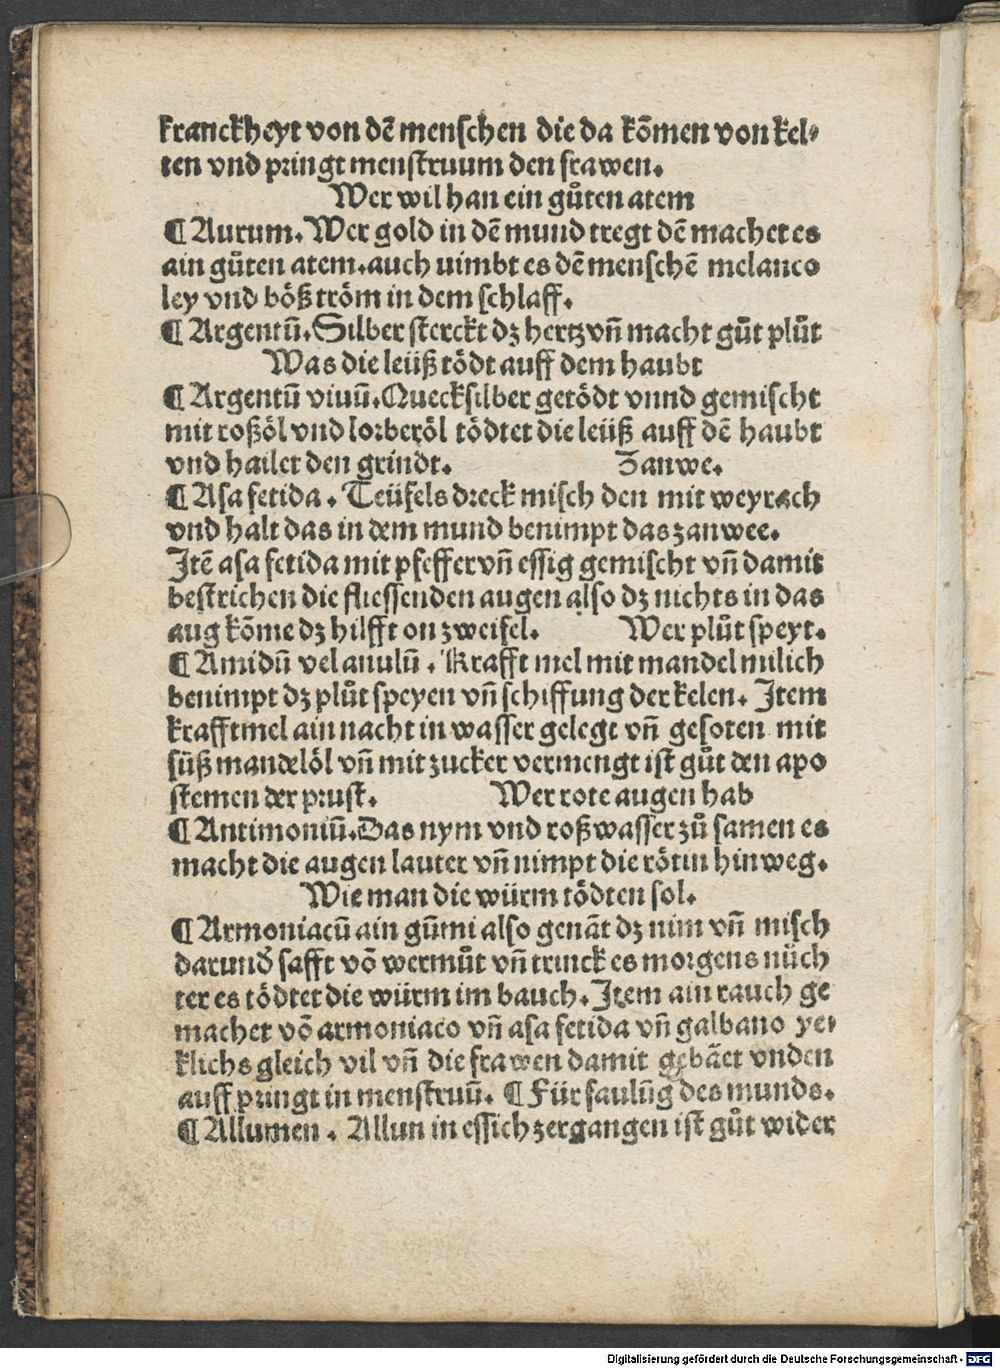 kranckheyt von dē menschen die da kōmen von kel⸗
ten vnd pringt menstruum den frawen.
Wer wil han ein gůten atem
¶ Aurum. Wer gold in dē mund tregt dē machet es
ain gůten atem. auch nimbt es dē menschē melanco
ley vnd böß tröm in dem schlaff.
¶ Argentū. Silber sterckt dz hertz vn̄ macht gůt plůt
Was die leüß tödt auff dem haubt
¶ Argentū viuū. Quecksilber getödt vnnd gemischt
mit roßöl vnd lorberöl tödtet die leüß auff dē haubt
vnd hailet den grindt. Zanwe.
¶ Asa fetida. Teüfels dreck misch den mit weyrach
vnd halt das in dem mund benimpt das zanwee.
Jtē asa fetida mit pfeffer vn̄ essig gemischt vn̄ damit
bestrichen die fliessenden augen also dz nichts in das
aug kōme dz hilfft on zweifel. Wer plůt speyt.
¶ Amidū vel anulū. Krafft mel mit mandel milich
benimpt dz plůt speyen vn̄ schiffung der kelen. Jtem
krafftmel ain nacht in wasser gelegt vn̄ gesoten mit
süß mandelöl vn̄ mit zucker vermengt ist gůt den apo
stemen der prust. Wer rote augen hab
¶ Antimoniū. Das nym vnd roß wasser zů samen es
macht die augen lauter vn̄ nimpt die rötin hin weg.
Wie man die würm tödten sol.
¶ Armoniacū ain gūmi also genāt dz nim vn̄ misch
darund̕ safft vō wermůt vn̄ trinck es morgens nüch
ter es tödtet die würm im bauch. Jtem ain rauch ge
machet vō armoniaco vn̄ asa fetida vn̄ galbano ye⸗
klichs gleich vil vn̄ die frawen damit gebäet vnden
auff pringt in menstruū. ¶ Für faulūg des munds.
¶ Allumen. Allun in essich zergangen ist gůt wider
Digitalisierung gefördert durch die Deutsche Forschungsgemeinschaft - DFG